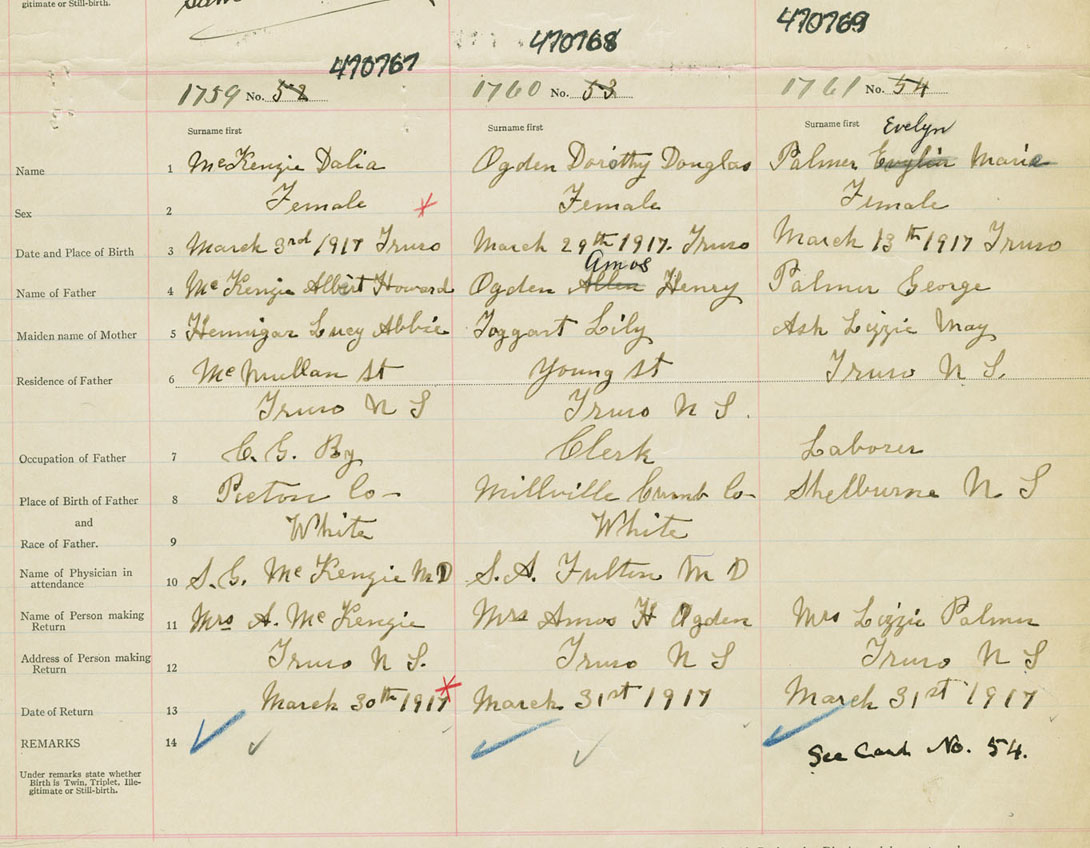 gitimate or Still-birth.
470767 470768 470769
1759 No. 52 1760 No. 53 1761 No. 54
Surname first Surname first Surname first Evelyn
Name 1 McKenzie Dalia Ogden Dorothy Douglas Palmer Marie
Sex 2 Female Female Female
Date and Place of Birth 3 March 3rd 1917 Truro March 29th 1917. Truro March 13th 1917 Truro
Amos
Name of Father 4 McKenzie Albert Howard Ogden Allen Henry Palmer George
Maiden name of Mother 5 Hennigar Lucy Abbie Toggart Lily Ash Lizzie May
Residence of Father 6 McMullan St Young St Truro N S.
Truro N S Truro N S.
Occupation of Father 7 C. G. Ry Clerk Laborer
Place of Birth of Father 8 Pictou Co- Millville Cumb Co- Shelburne N S
and
Race of Father. 9 White White
Name of Physician in
attendance 10 S. G. McKenzie M D S. A. Fulton M D
Name of Person making
Return 11 Mrs A. McKenzie Mrs Amos H Ogden Mrs Lizzie Palmer
Address of Person making
Return 12 Truro N S. Truro N S Truro N S
Date of Return 13 March 30th 1917 March 31st 1917 March 31st 1917
REMARKS 14 See Card No. 54.
Under remarks state whether
Birth is Twin, Triplet, Ille-
gitimate or Still-birth.